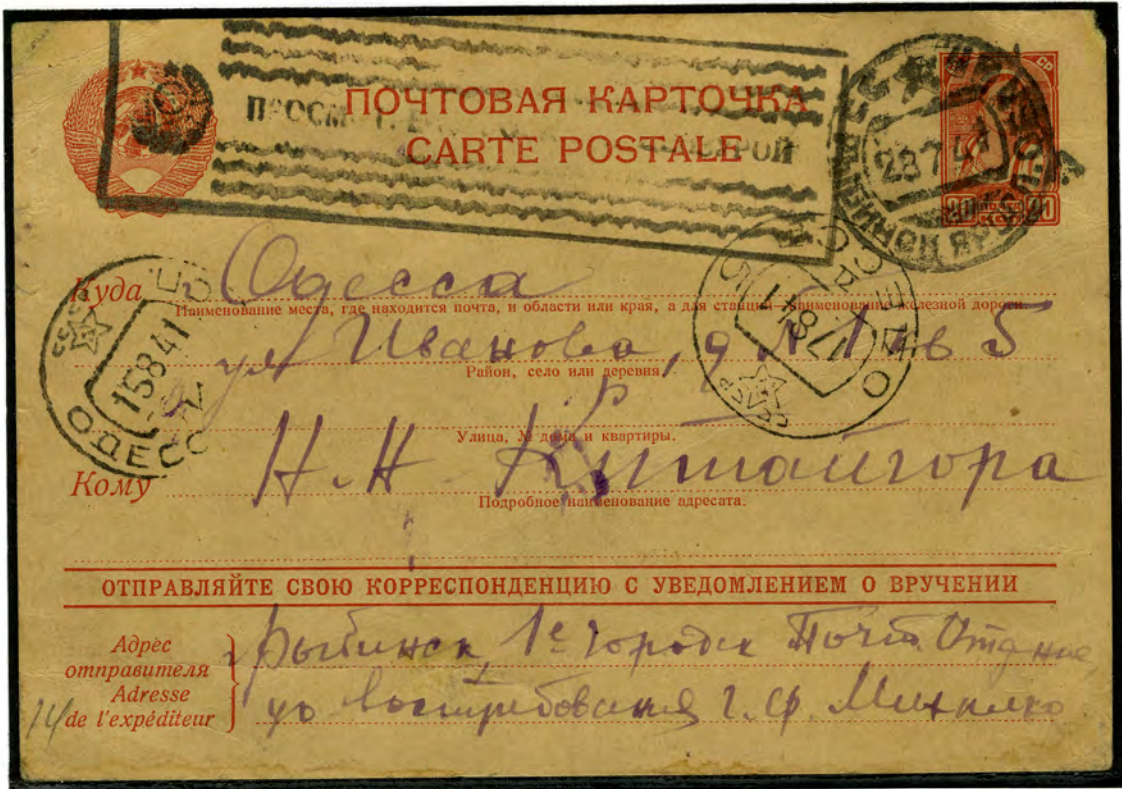 ПОЧТОВАЯ КАРТОЧКА
CARTE POSTALE
28 7 41
20 20
Куда Одесса
Наименование места, где находится почта, и области или края, а для станции—наименование железной дороги
ул Иванова, д № 1 кв 5
Район, село или деревня
15 8 41
ОДЕССА
17 8 41
СССР
Улица, № дома и квартиры.
Кому Н. Н. Китайгора
Подробное наименование адресата.
ОТПРАВЛЯЙТЕ СВОЮ КОРРЕСПОНДЕНЦИЮ С УВЕДОМЛЕНИЕМ О ВРУЧЕНИИ
Адрес отправителя
Adresse de l'expéditeur
г Рыбинск, 1е городск Почт. Отд-ние
до востребования г. ф.
14